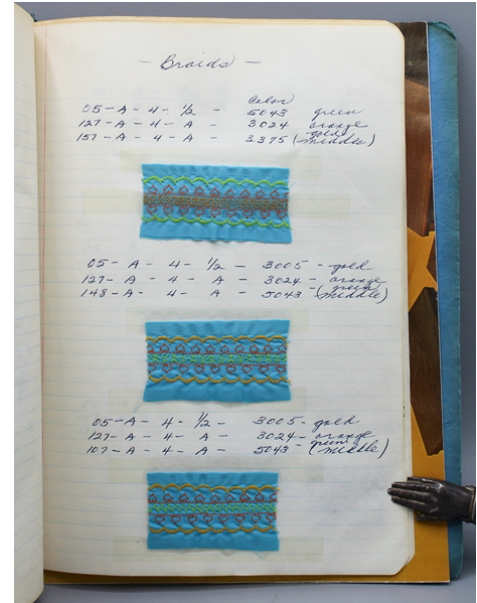 - Braids -
Color
05 - A - 4 - 1/2 - 5043 green
127 - A - 4 - A - 3024 orange
157 - A - 4 - A - 3375 (gold middle)
05 - A - 4 - 1/2 - 3005 - gold
127 - A - 4 - A - 3024 - orange
148 - A - 4 - A - 5043 - (green middle)
05 - A - 4 - 1/2 - 3005 - gold
127 - A - 4 - A - 3024 - orange
107 - A - 4 - A - 5043 - green (middle)